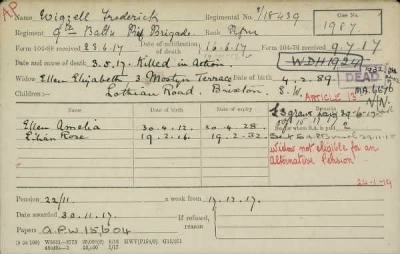 AP
Name Wiggell Frederick Regimental No. 7/18439 Case No. 1987.
Regiment 9th Battn Rif Brigade. Rank Rfm
Form 104-88 received 23.6.17 Date of notification of death 16.6.17 Form 104-76 received 9.7.17
Date and cause of death 3.5.17. Killed in Action. WDH1924
Widow Ellen Elizabeth 3 Mostyn Terrace Date of birth 4.2.89. DEAD
Children:— Lothian Road. Brixton. S.W. ARTICLE 13
Date of birth Date of expiry Remarks
Ellen Amelia 30.4.12. 30.4.28.
Lilian Rose. 19.2.16. 19.2.32.
Widow not eligible for an
Alternative Pension
24-1-19
Pension 22/11 a week from 17.12.17.
Date awarded 30.11.17. If refused, reason
Papers A.P.W 15,004